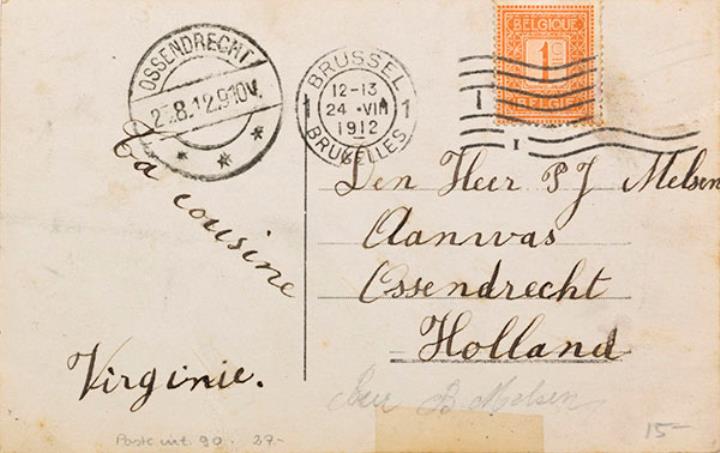 OSSENDRECHT
.8.12.910V.
BRUSSEL
12-13
1 24 VIII 1
1912
BRUXELLES
BELGIQUE
1c
BELGIE
I
Ta cousine
Virginie.
Den Heer P J Melsen
Aanwas
Ossendrecht
Holland
B Melsen
15-
90. 27.-